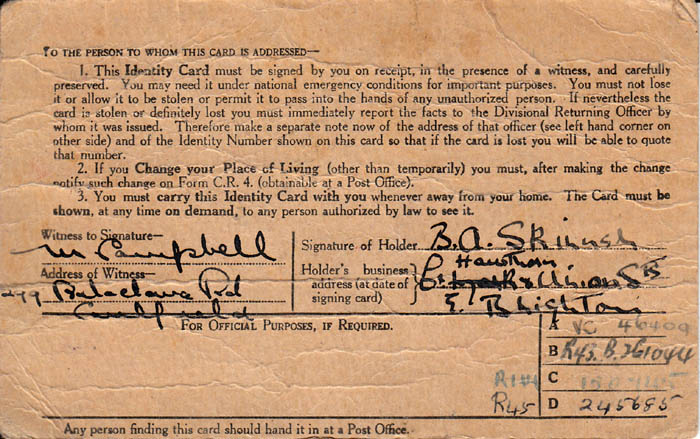 TO THE PERSON TO WHOM THIS CARD IS ADDRESSED—
1. This Identity Card must be signed by you on receipt, in the presence of a witness, and carefully
preserved. You may need it under national emergency conditions for important purposes. You must not lose
it or allow it to be stolen or permit it to pass into the hands of any unauthorized person. If nevertheless the
card is stolen or definitely lost you must immediately report the facts to the Divisional Returning Officer by
whom it was issued. Therefore make a separate note now of the address of that officer (see left hand corner on
other side) and of the Identity Number shown on this card so that if the card is lost you will be able to quote
that number.
2. If you Change your Place of Living (other than temporarily) you must, after making the change
notify such change on Form C.R. 4. (obtainable at a Post Office).
3. You must carry this Identity Card with you whenever away from your home. The Card must be
shown, at any time on demand, to any person authorized by law to see it.
Witness to Signature—
M Campbell
Address of Witness—
Balaclava Rd
Caulfield
Signature of Holder B.A.
Holder's business
address (at date of
signing card)
Hawthorn
& Union Sts
E. Brighton
FOR OFFICIAL PURPOSES, IF REQUIRED.
A VC 46409
B R43.B.
C
R45 D 245685
Any person finding this card should hand it in at a Post Office.